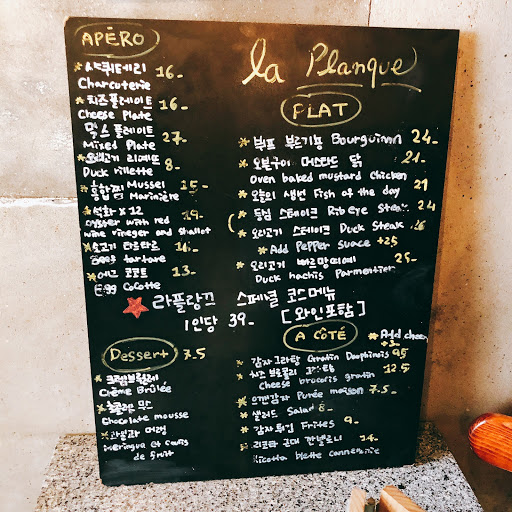 APÉRO
샤퀴테리 16-
Charcuterie
치즈플레이트 16-
Cheese Plate
믹스 플레이트 27-
Mixed Plate
오리고기 리예뜨 8-
Duck rillette
홍합찜 Mussel 15-
Marinière
석화 x 12 19-
oyster with red
wine vineger and shallot
소고기 타르타르
Beef tartare
에그 코코트 13-
Egg Cocotte
la Planque
PLAT
비프 부르기뇽 Bourguinon 24-
오븐구이 머스타드 닭 21-
oven baked mustard Chicken
오늘의 생선 Fish of the day 21
등심 스테이크 Rib Eye steak 24
오리고기 스테이크 Duck Steak 26
* Add Pepper suace +25
오리고기 빠르망띠에 25-
Duck hachis Parmentier
라플랑끄 스페셜 코스메뉴
1인당 39- [와인포함]
Dessert 7.5
크렘브륄레
Crème Brûlée
초콜렛 무스
Chocolate mousse
과일과 머랭
Meringue et fruits
de fruit
A CÔTÉ
* Add cheese
+3-
감자그라탕 Gratin Dauphinois 9.5
치즈 브로콜리 그라탕 12.5
Cheese brocoris gratin
으깬감자 Purée maison 7.5-
샐러드 Salad 8-
감자튀김 Frites 9-
리코타 근대 깐넬로니 14-
Ricotta blette cannellonie